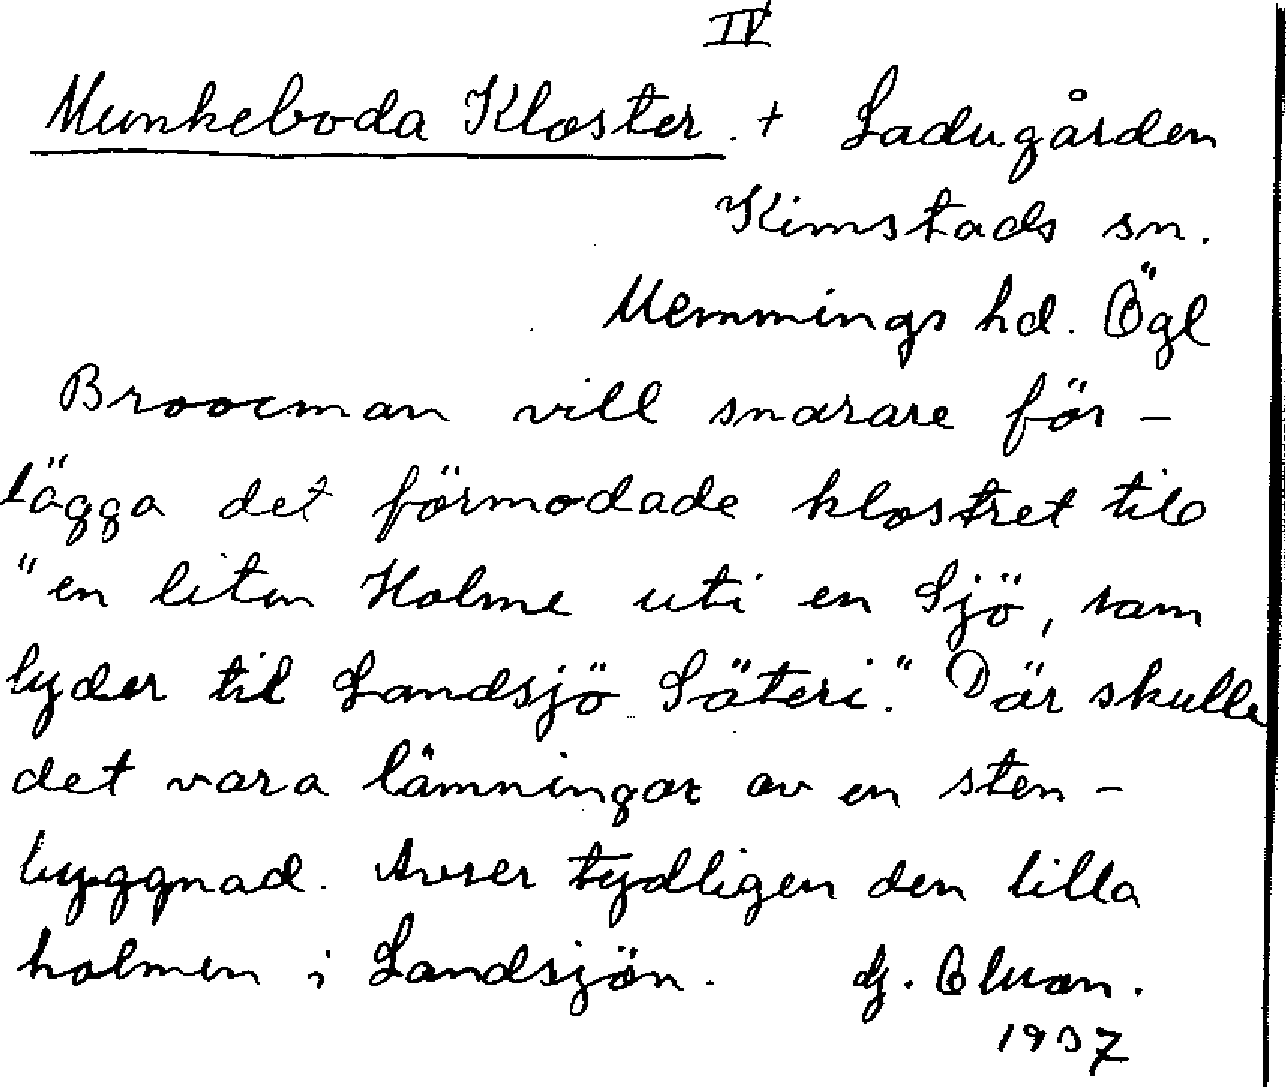 IV
Munkeboda Kloster. + Ladugården
Kimstads sn.
Memmings hd. Ögl
Broocman vill snarare för-
lägga det förmodade klostret til
"en liten Holme uti en Sjö, som
lyder til Landsjö Säteri." Där skulle
det vara lämningar av en sten-
byggnad. Avser tydligen den lilla
holmen i Landsjön.
1937